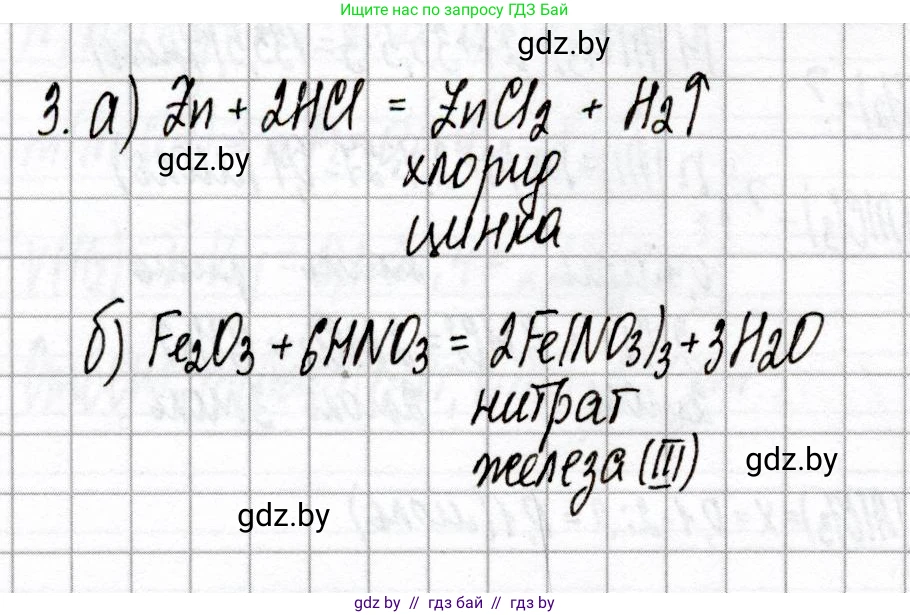 Ищите нас по запросу ГДЗ Бай
gdz.by
3. а) Zn + 2HCl = ZnCl₂ + H₂↑
gdz.by
хлорид
цинка
б) Fe₂O₃ + 6HNO₃ = 2Fe(NO₃)₃ + 3H₂O
нитрат
железа (III)
gdz.by
gdz.by
gdz.by // гдз бай // gdz.by